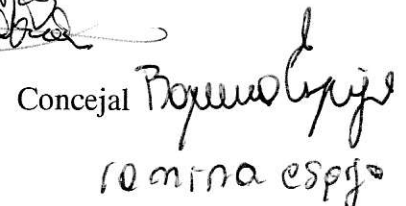 Concejal Romina Espejo
romina espejo